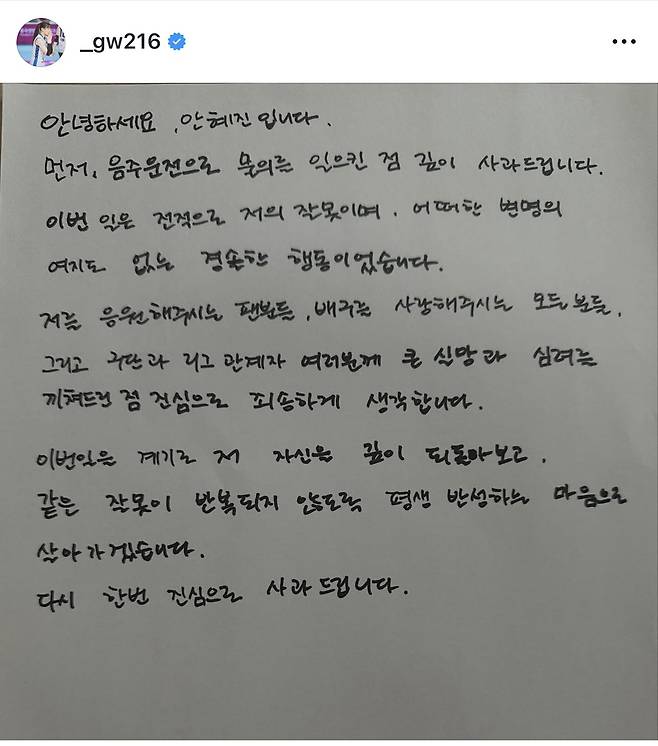 _gw216
안녕하세요, 안혜진입니다.
먼저, 음주운전으로 물의를 일으킨 점 깊이 사과드립니다.
이번 일은 전적으로 저의 잘못이며, 어떠한 변명의
여지도 없는 경솔한 행동이었습니다.
저를 응원해주시는 팬분들, 배구를 사랑해주시는 모든분들,
그리고 구단과 리그 관계자 여러분께 큰 실망과 심려를
끼쳐드린 점 진심으로 죄송하게 생각합니다.
이번일을 계기로 저 자신을 깊이 되돌아보고,
같은 잘못이 반복되지 않도록 평생 반성하는 마음으로
살아가겠습니다.
다시 한번 진심으로 사과드립니다.